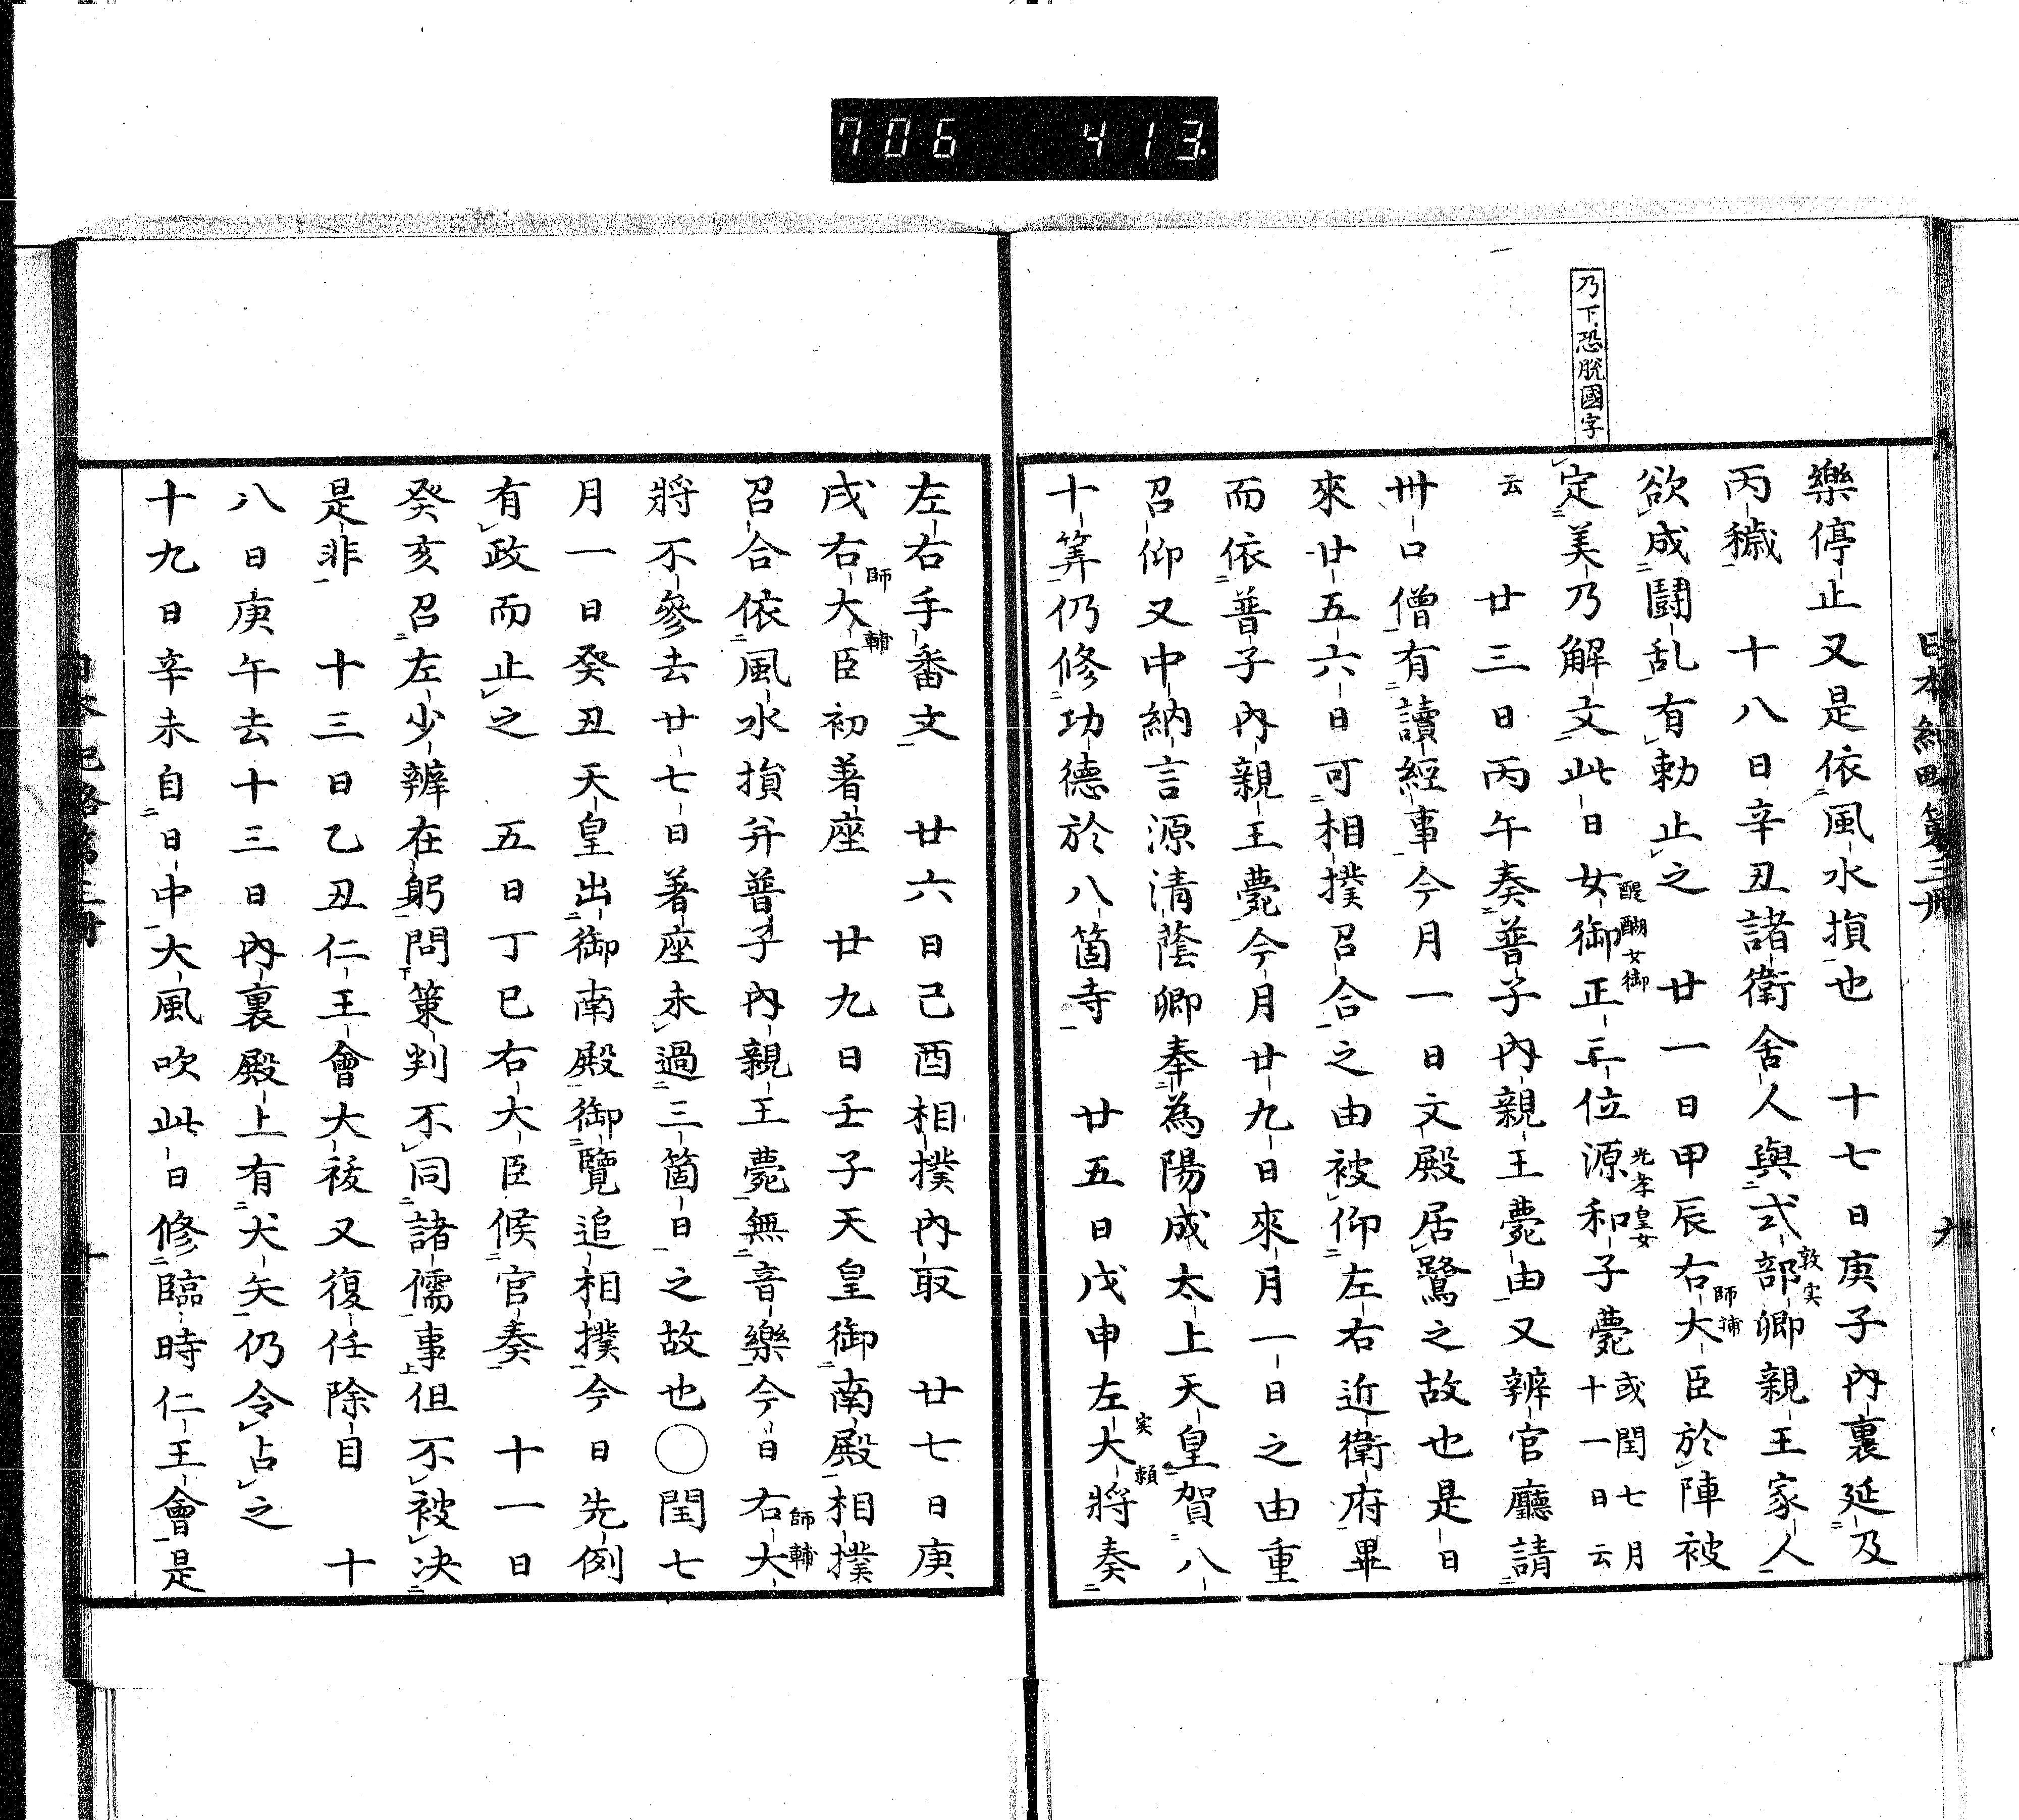 706 413
乃下恐脱國字
樂停止又是依風水損也　十七日庚子内裏延及
丙穢　十八日辛丑諸衛舍人與式部敦実卿親王家人
欲成鬪乱有勅止之　廿一日甲辰右大師輔臣於陣被
定美乃解文此日女御醍醐女御正三位源和子光孝皇女薨或閏七月十一日云
云　廿三日丙午奏普子内親王薨由又辨官廳請
卅口僧有讀經事今月一日文殿居鷺之故也是日
來廿五六日可相撲召合之由被仰左右近衛府畢
而依普子内親王薨今月廿九日來月一日之由重
召仰又中納言源清蔭卿奉為陽成太上天皇賀八
十筭仍修功德於八箇寺　廿五日戊申左大実頼將奏
左右手番文　廿六日己酉相撲内取　廿七日庚
戌右大師輔臣初著座　廿九日壬子天皇御南殿相撲
召合依風水損并普子内親王薨無音樂今日右大師輔
將不參去廿七日著座未過三箇日之故也○閏七
月一日癸丑天皇出御南殿御覽追相撲今日先例
有政而止之　五日丁巳右大臣候官奏　十一日
癸亥召左少辨在躬問策判不同諸儒事但不被决
是非　十三日乙丑仁王會大祓又復任除目　十
八日庚午去十三日内裏殿上有犬矢仍令占之
十九日辛未自日中大風吹此日修臨時仁王會是